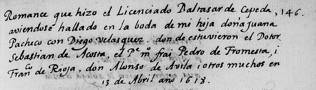 Romance que hizo el Licenciado Baltasar de Cepeda, 146.
aviendose hallado en la boda de mi hija doña Juana
Pacheco con Diego Velasquez. donde estuvieron el Dotor
Sebastian de Acosta, el Pe. mo. frai Pedro de Fromesta, i
Franco. de Rioja, don Alonso de Avila, i otros muchos en
23 de Abril año 1618.